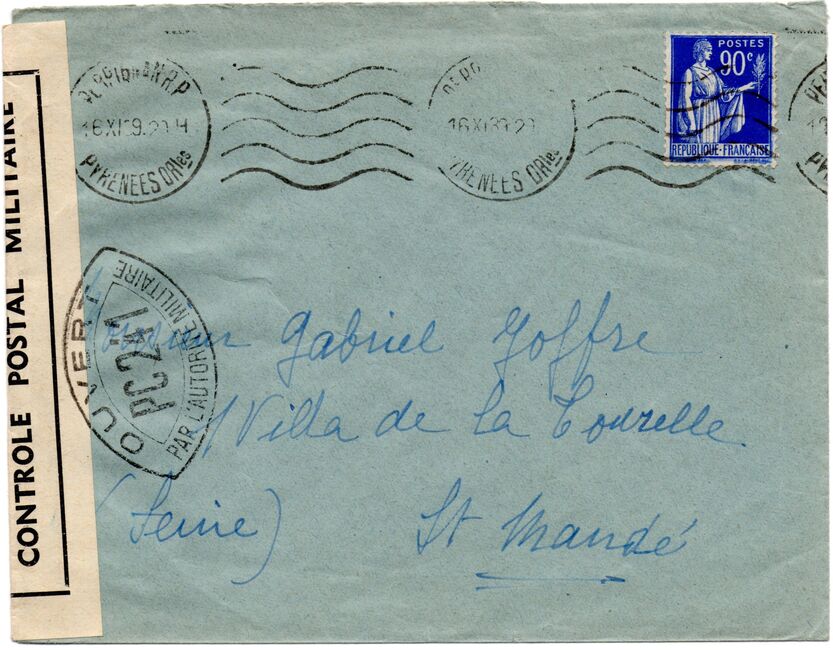 PERPIGNAN R.P
16 XI 39.20 H
PYRENEES ORles
16 XI 39.20
PYRENEES ORles
POSTES
90c
REPUBLIQUE-FRANÇAISE
CONTROLE POSTAL MILITAIRE
OUVERT
PC241
PAR L'AUTORITE MILITAIRE
Monsieur Gabriel Goffre
1 Villa de la Tourelle.
(Seine) St Mandé